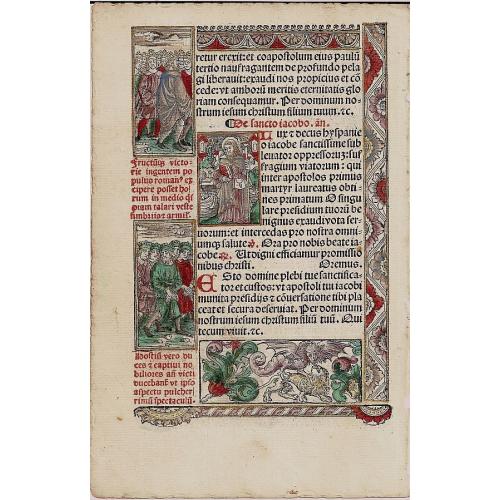 retur erexit: et coapostolum eius paulū
tertio naufragantem de profundo pela
gi liberauit: exaudi nos propicius et cō
cede: vt amborū meritis eternitatis glo
riam consequamur. Per dominum no-
strum iesum christum filium tuum. ⁊c.
De sancto iacobo. añ.
Lux ⁊ decus hyspanie
o iacobe sanctissime sub
leuator oppressorū: suf
fragium viatorum: qui
inter apostolos primus
martyr laureatus obti
nes primatum O singu
lare presidium tuorū be
nignus exaudi vota ser-
uorum: et intercedas pro nostra omni-
umq̄ salute. ℣. Ora pro nobis beate ia-
cobe. ℟. Ut digni efficiamur promissio
nibus christi. Oremus.
Esto domine plebi tue sanctifica-
tor et custos: vt apostoli tui iacobi
munita presidijs ⁊ cōuersatione tibi pla
ceat et secura deseruiat. Per dominum
nostrum iesum christum filiū tuū. Qui
tecum viuit. ⁊c.
Fructūq̄ victo-
rie ingentem po
pulus roman⁹ ex
cipere posset
rum in medio
talari veste
fimbrijsq̄ armis.
Hostiū vero du
ces ⁊ captiui no
biliores añ victi
ducebant vt ipso
aspectu pulcher
rimū spectaculū.